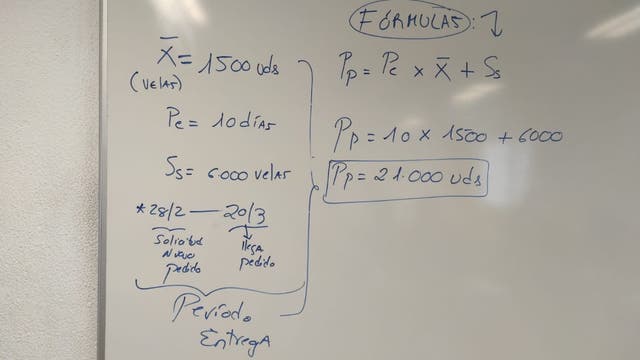 X̄ = 1500 uds
(VELAS)
Pe = 10 días
Ss = 6.000 velas
* 28/2 — 20/3
Solicitud
Nuevo
pedido
llega
pedido
Período
Entrega
FÓRMULAS:
Pp = Pe x X̄ + Ss
Pp = 10 x 1500 + 6000
Pp = 21.000 uds